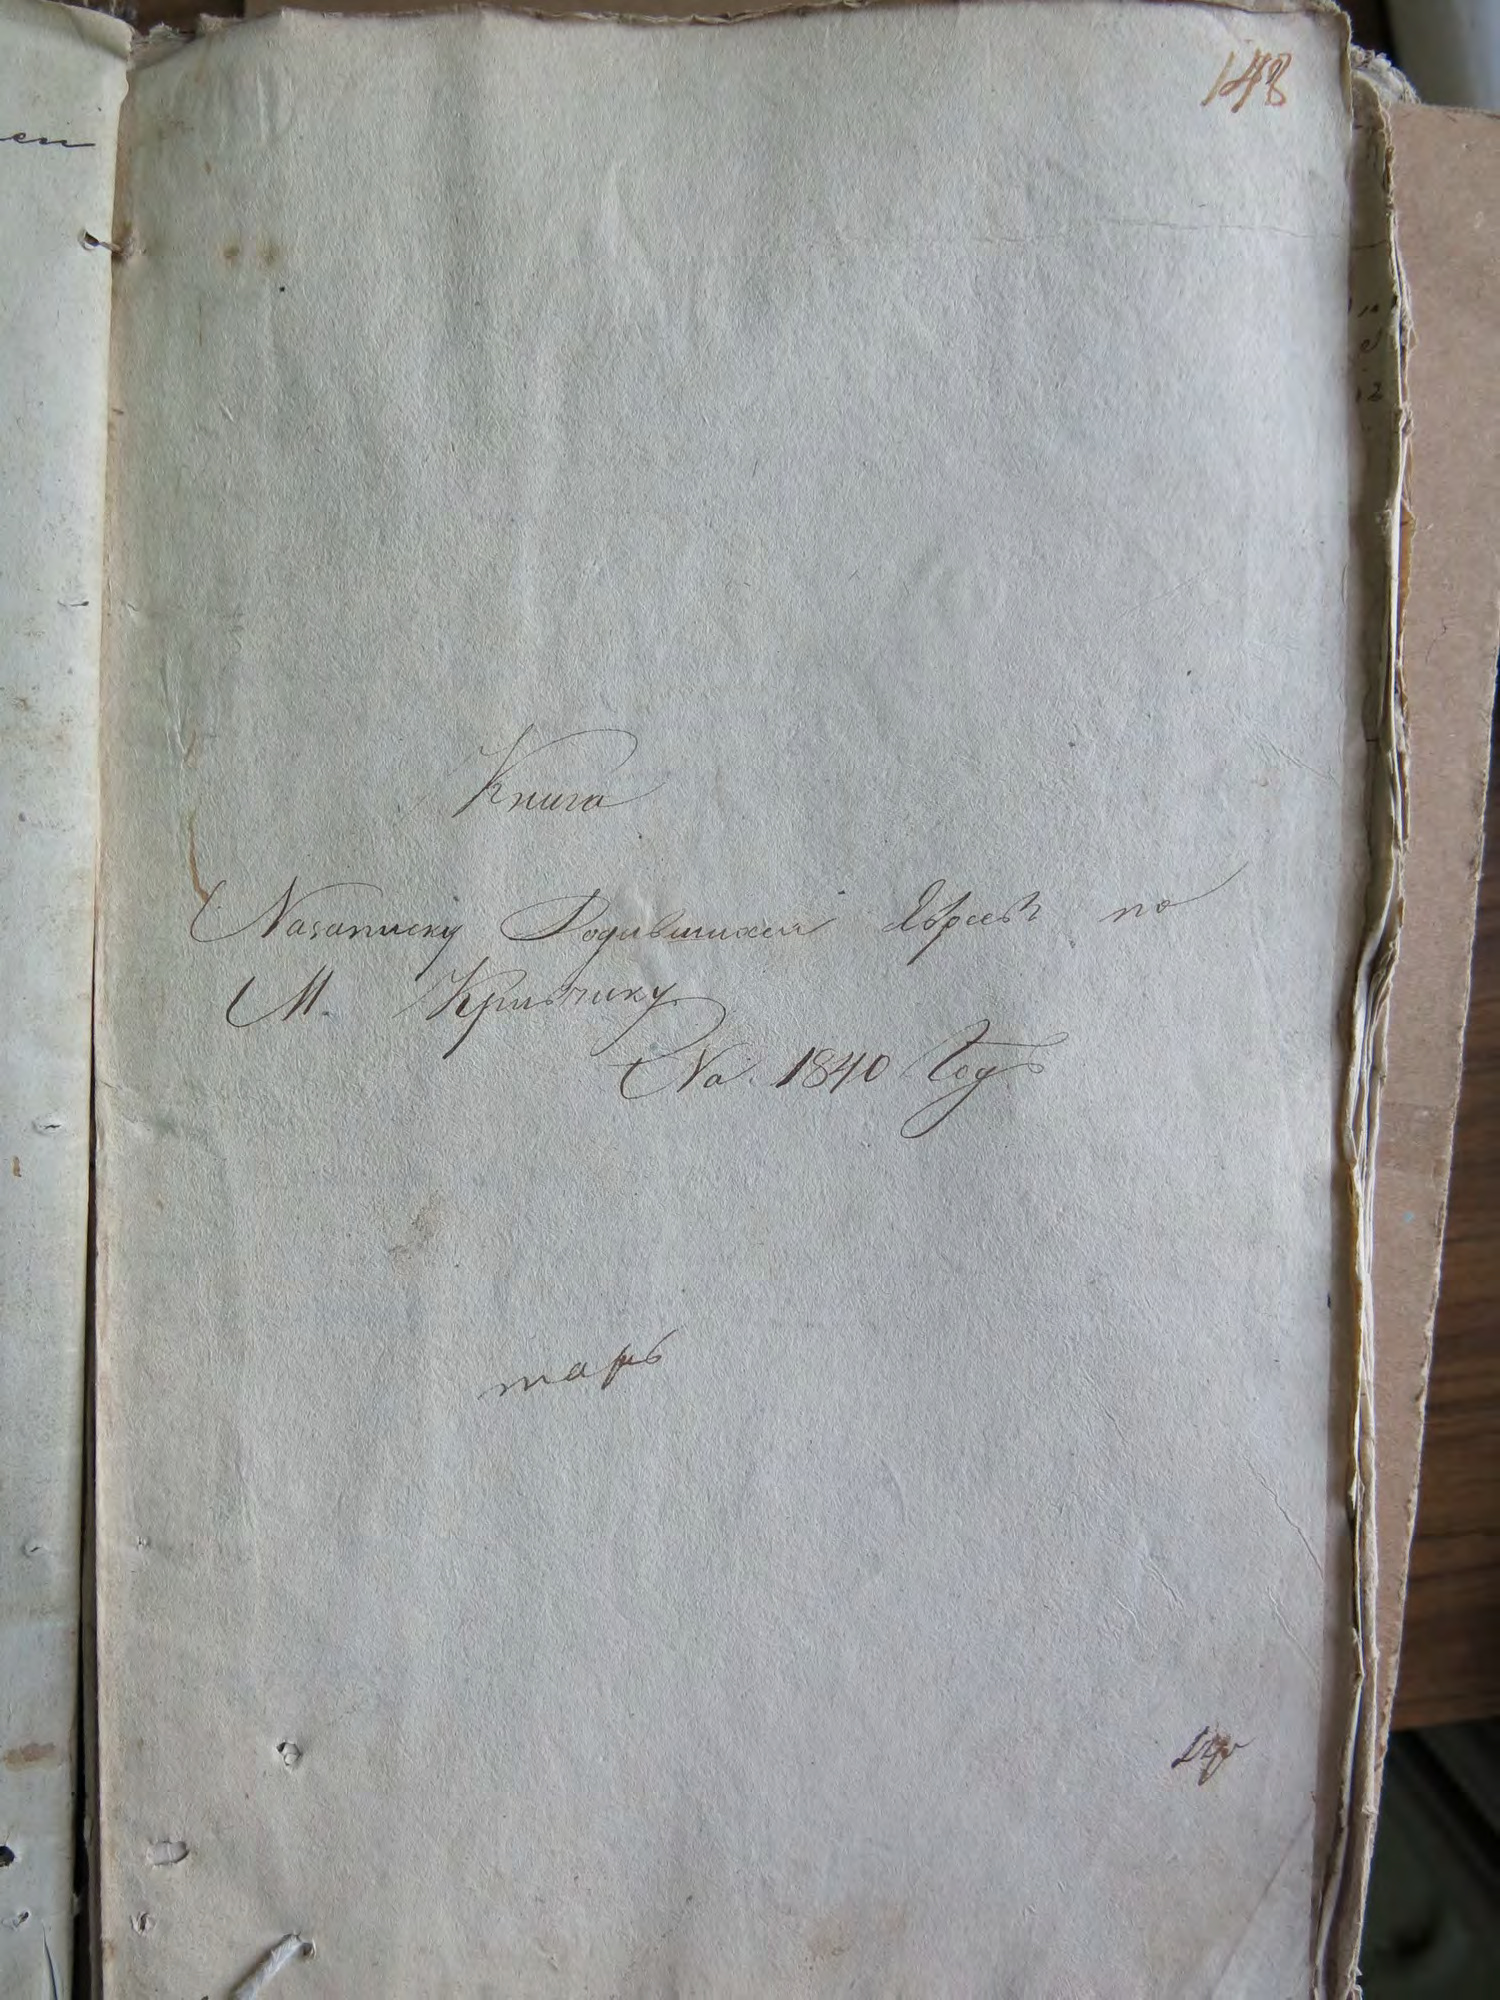 148
Книга
На записку Родившихся Евреевъ по
М. Кривчику
На 1840 Годъ
тарь